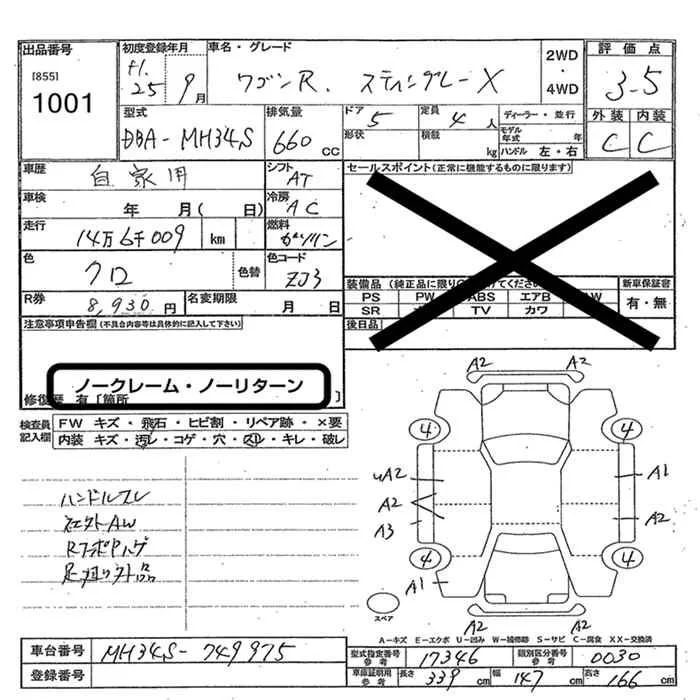 出品番号 初度登録年月 車名・グレード 2WD・4WD 評価点
[855]
1001
H. 25 9月 ワゴンR. スティングレーX 3.5
型式 排気量 ドア 5 定員 4人 ディーラー・並行 外装 内装
DBA-MH34S 660cc 形状 積載 kg モデル年式 年 ハンドル 左・右 C C
車歴 自家用 シフト AT セールスポイント(正常に機能するものに限ります)
車検 年 月( 日) 冷房 AC
走行 14万6千009 km 燃料 ガソリン
色 クロ 色替 色コード ZJ3
装備品(純正品に限り 新車保証書
PS PW ABS エアB AW 有・無
SR TV カワ
後日品
R券 8,930円 名変期限 月 日
注意事項申告欄(不具合内容等は具体的に記入して下さい)
ノークレーム・ノーリターン
修復歴 有[箇所 ]
検査員記入欄 FW キズ・飛石・ヒビ割・リペア跡・×要
内装 キズ・汚レ・コゲ・穴・スレ・キレ・破レ
ハンドルスレ
社外AW
A2 A2
4 4
uA2 A1
A2 A2
A3
4 4
A1
A2 A2
スペア
A-キズ E-エクボ U-凹み W-補修跡 S-サビ C-腐食 XX-交換済
車台番号 MH34S-749975
登録番号
型式指定番号 参考 17346 類別区分番号 参考 0030
車庫証明用 参考 長さ 339cm 幅 147cm 高さ 166cm